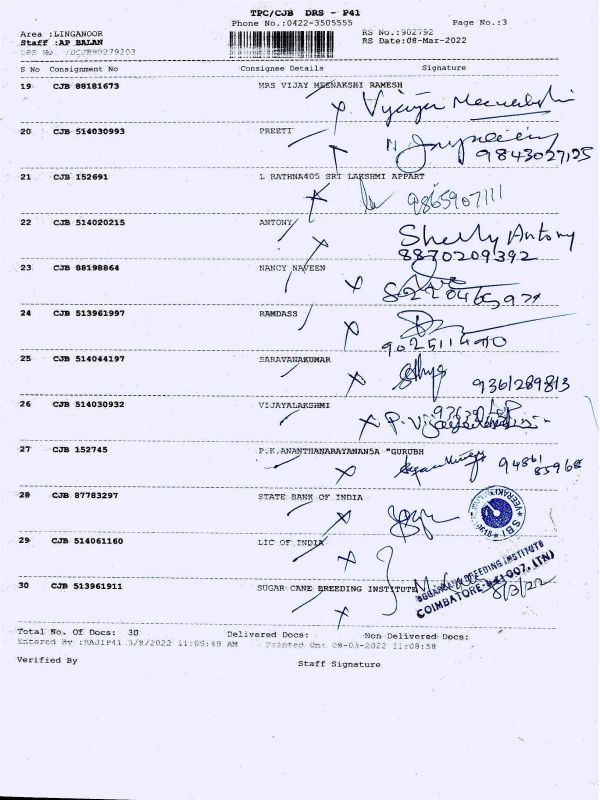 TPC/CJB DRS - P41
Phone No.:0422-3505555 Page No.:3
Area :LINGANOOR RS No.:902792
Staff :AP BALAN RS Date:08-Mar-2022
DRS No.
S No Consignment No Consignee Details Signature
19 CJB 88181673 MRS VIJAY MEENAKSHI RAMESH
Vijaya Meenakshi
20 CJB 514030993 PREETI
21 CJB 152691 L RATHNA405 SRI LAKSHMI APPART
9865907111
22 CJB 514020215 ANTONY
Shelly Antony
8870209392
23 CJB 88198864 NANCY NAVEEN
24 CJB 513961997 RAMDASS
25 CJB 514044197 SARAVANAKUMAR
9361289813
26 CJB 514030932 VIJAYALAKSHMI
27 CJB 152745 P.K.ANANTHANARAYANAN5A "GURUBH
94861
85968
28 CJB 87783297 STATE BANK OF INDIA
SBI
29 CJB 514061160 LIC OF INDIA
30 CJB 513961911 SUGAR CANE BREEDING INSTITUTE
BREEDING INSTITUTE
COIMBATORE-641 007. (TN)
8/3/22
Total No. Of Docs: 30 Delivered Docs: Non Delivered Docs:
Entered By :RAJIP41 3/8/2022 11:06:49 AM Printed On: 08-03-2022 11:08:58
Verified By Staff Signature